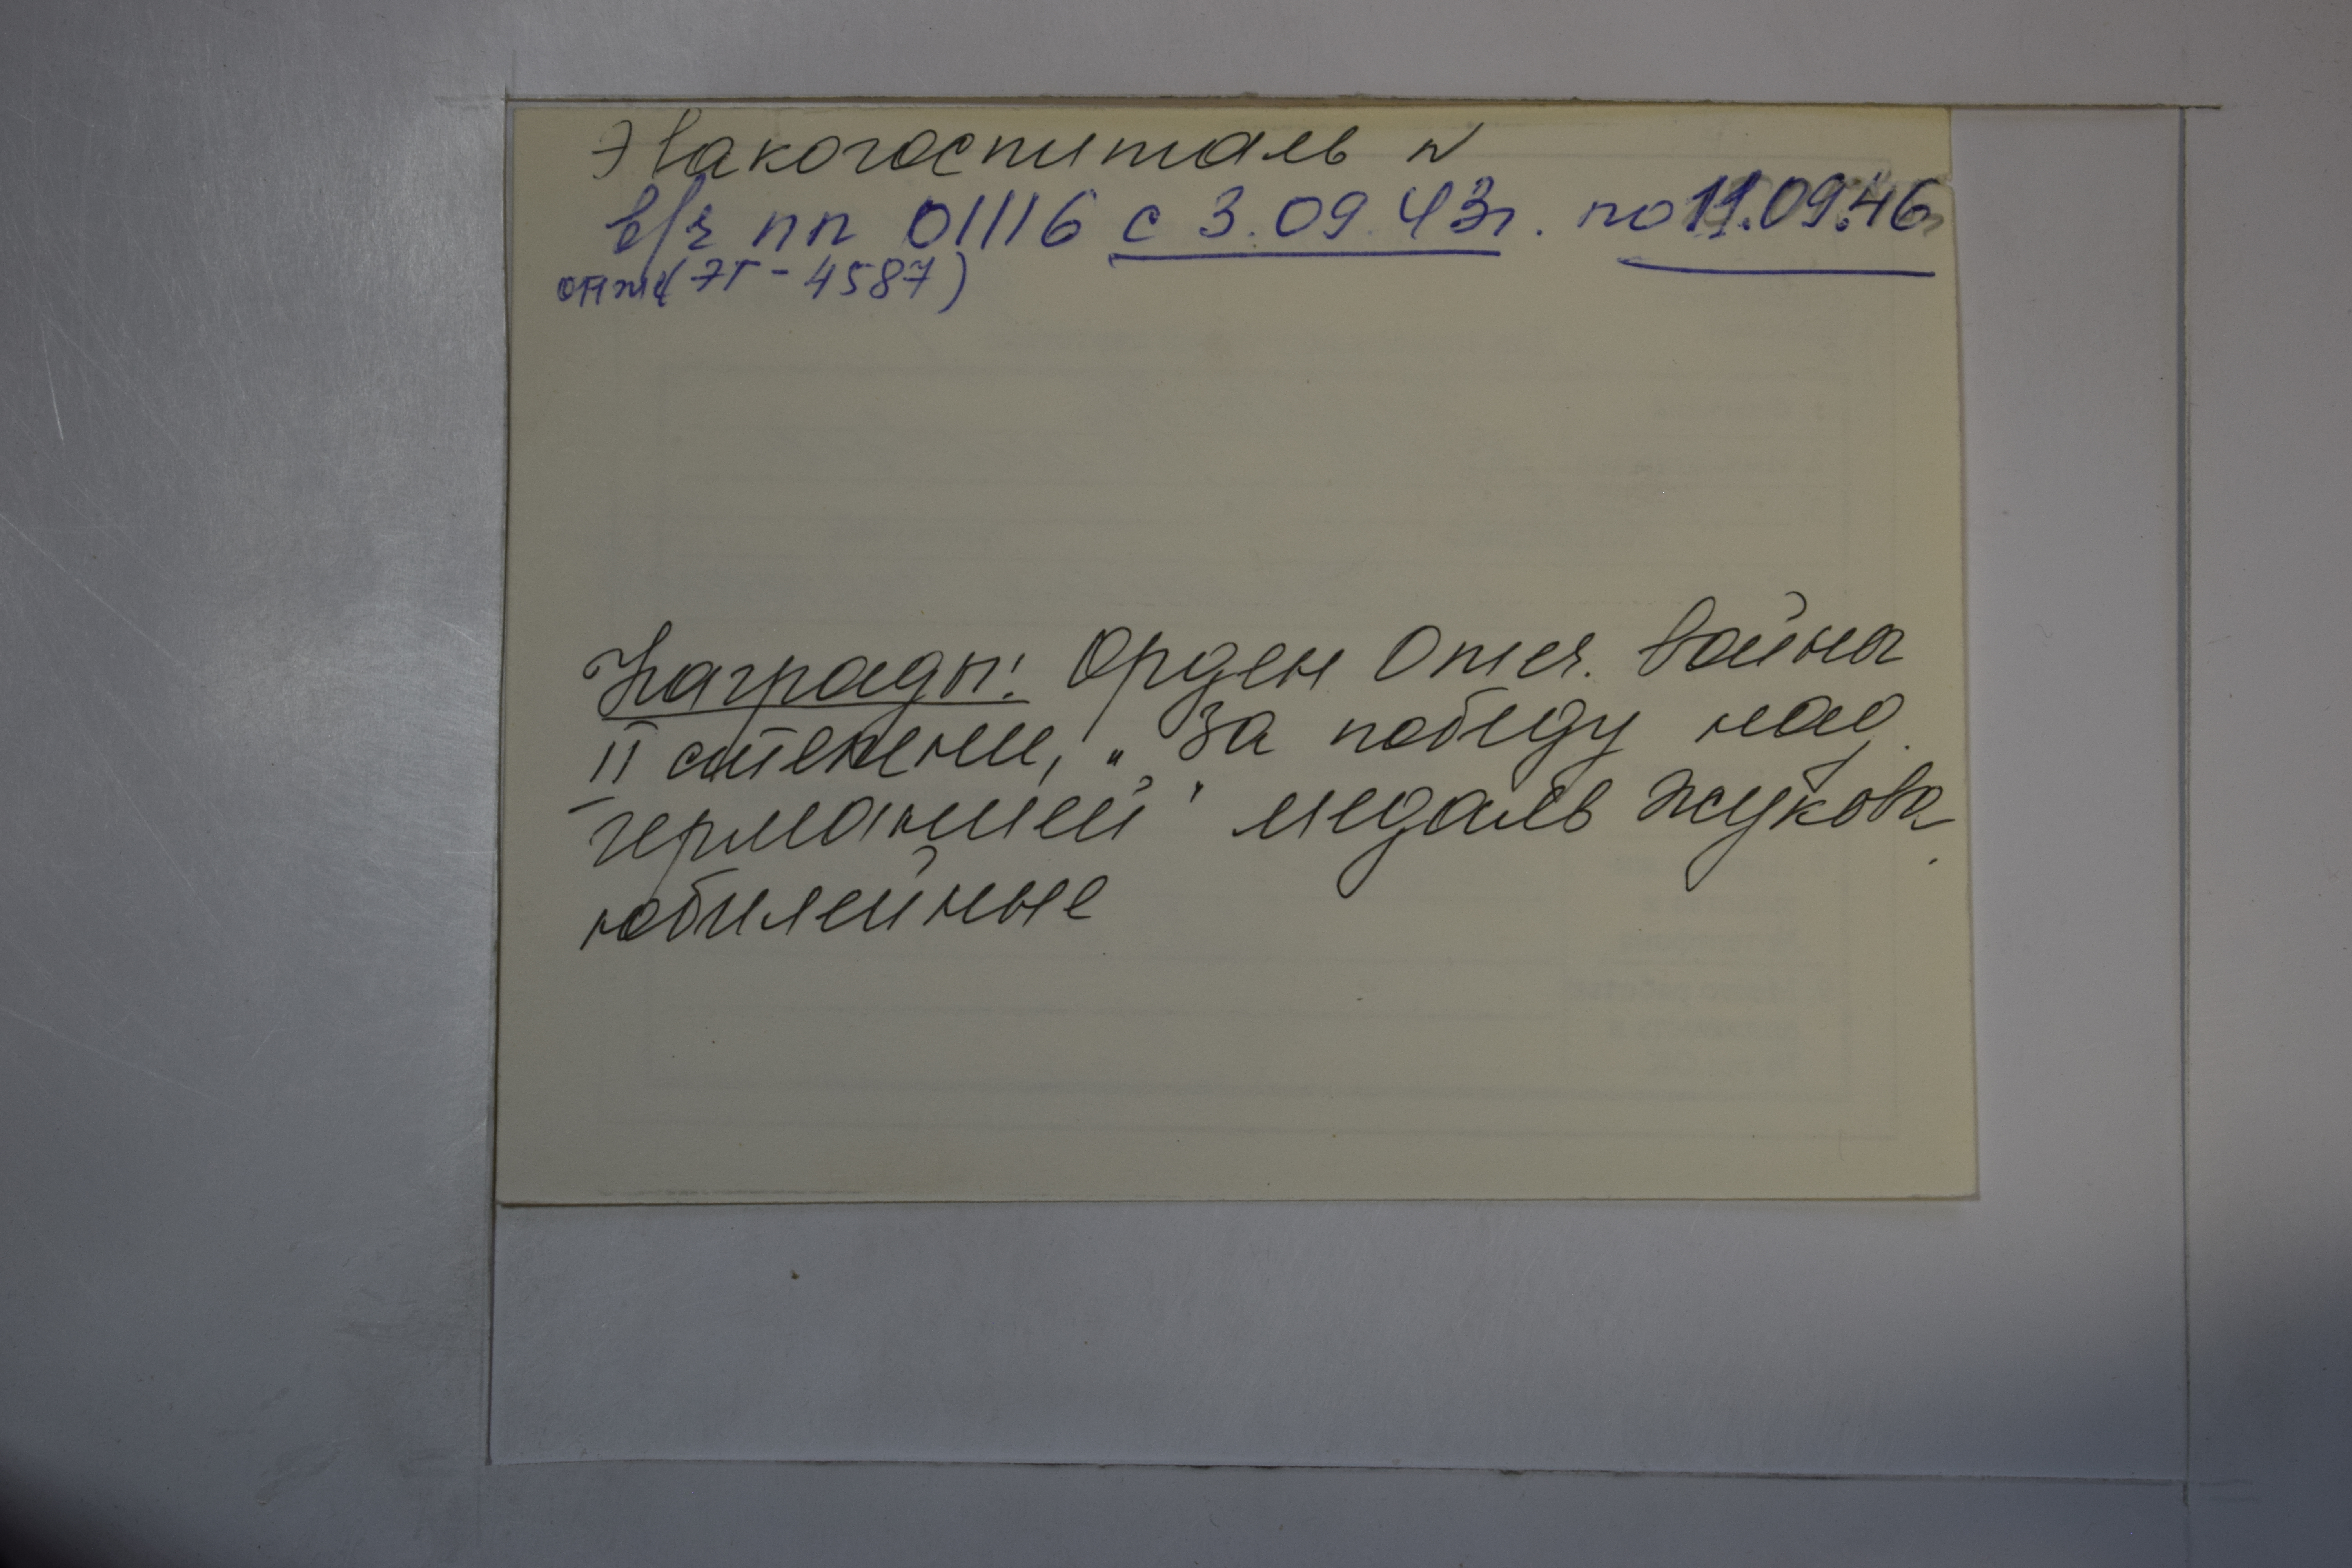 Эвакогоспиталь N
в/ч пп 01116 с 3.09.43г. по 11.09.46
(ЭГ-4587)
Награды: Орден Отеч. война
II степени, „За победу над
германией" медаль Жукова,
юбилейные